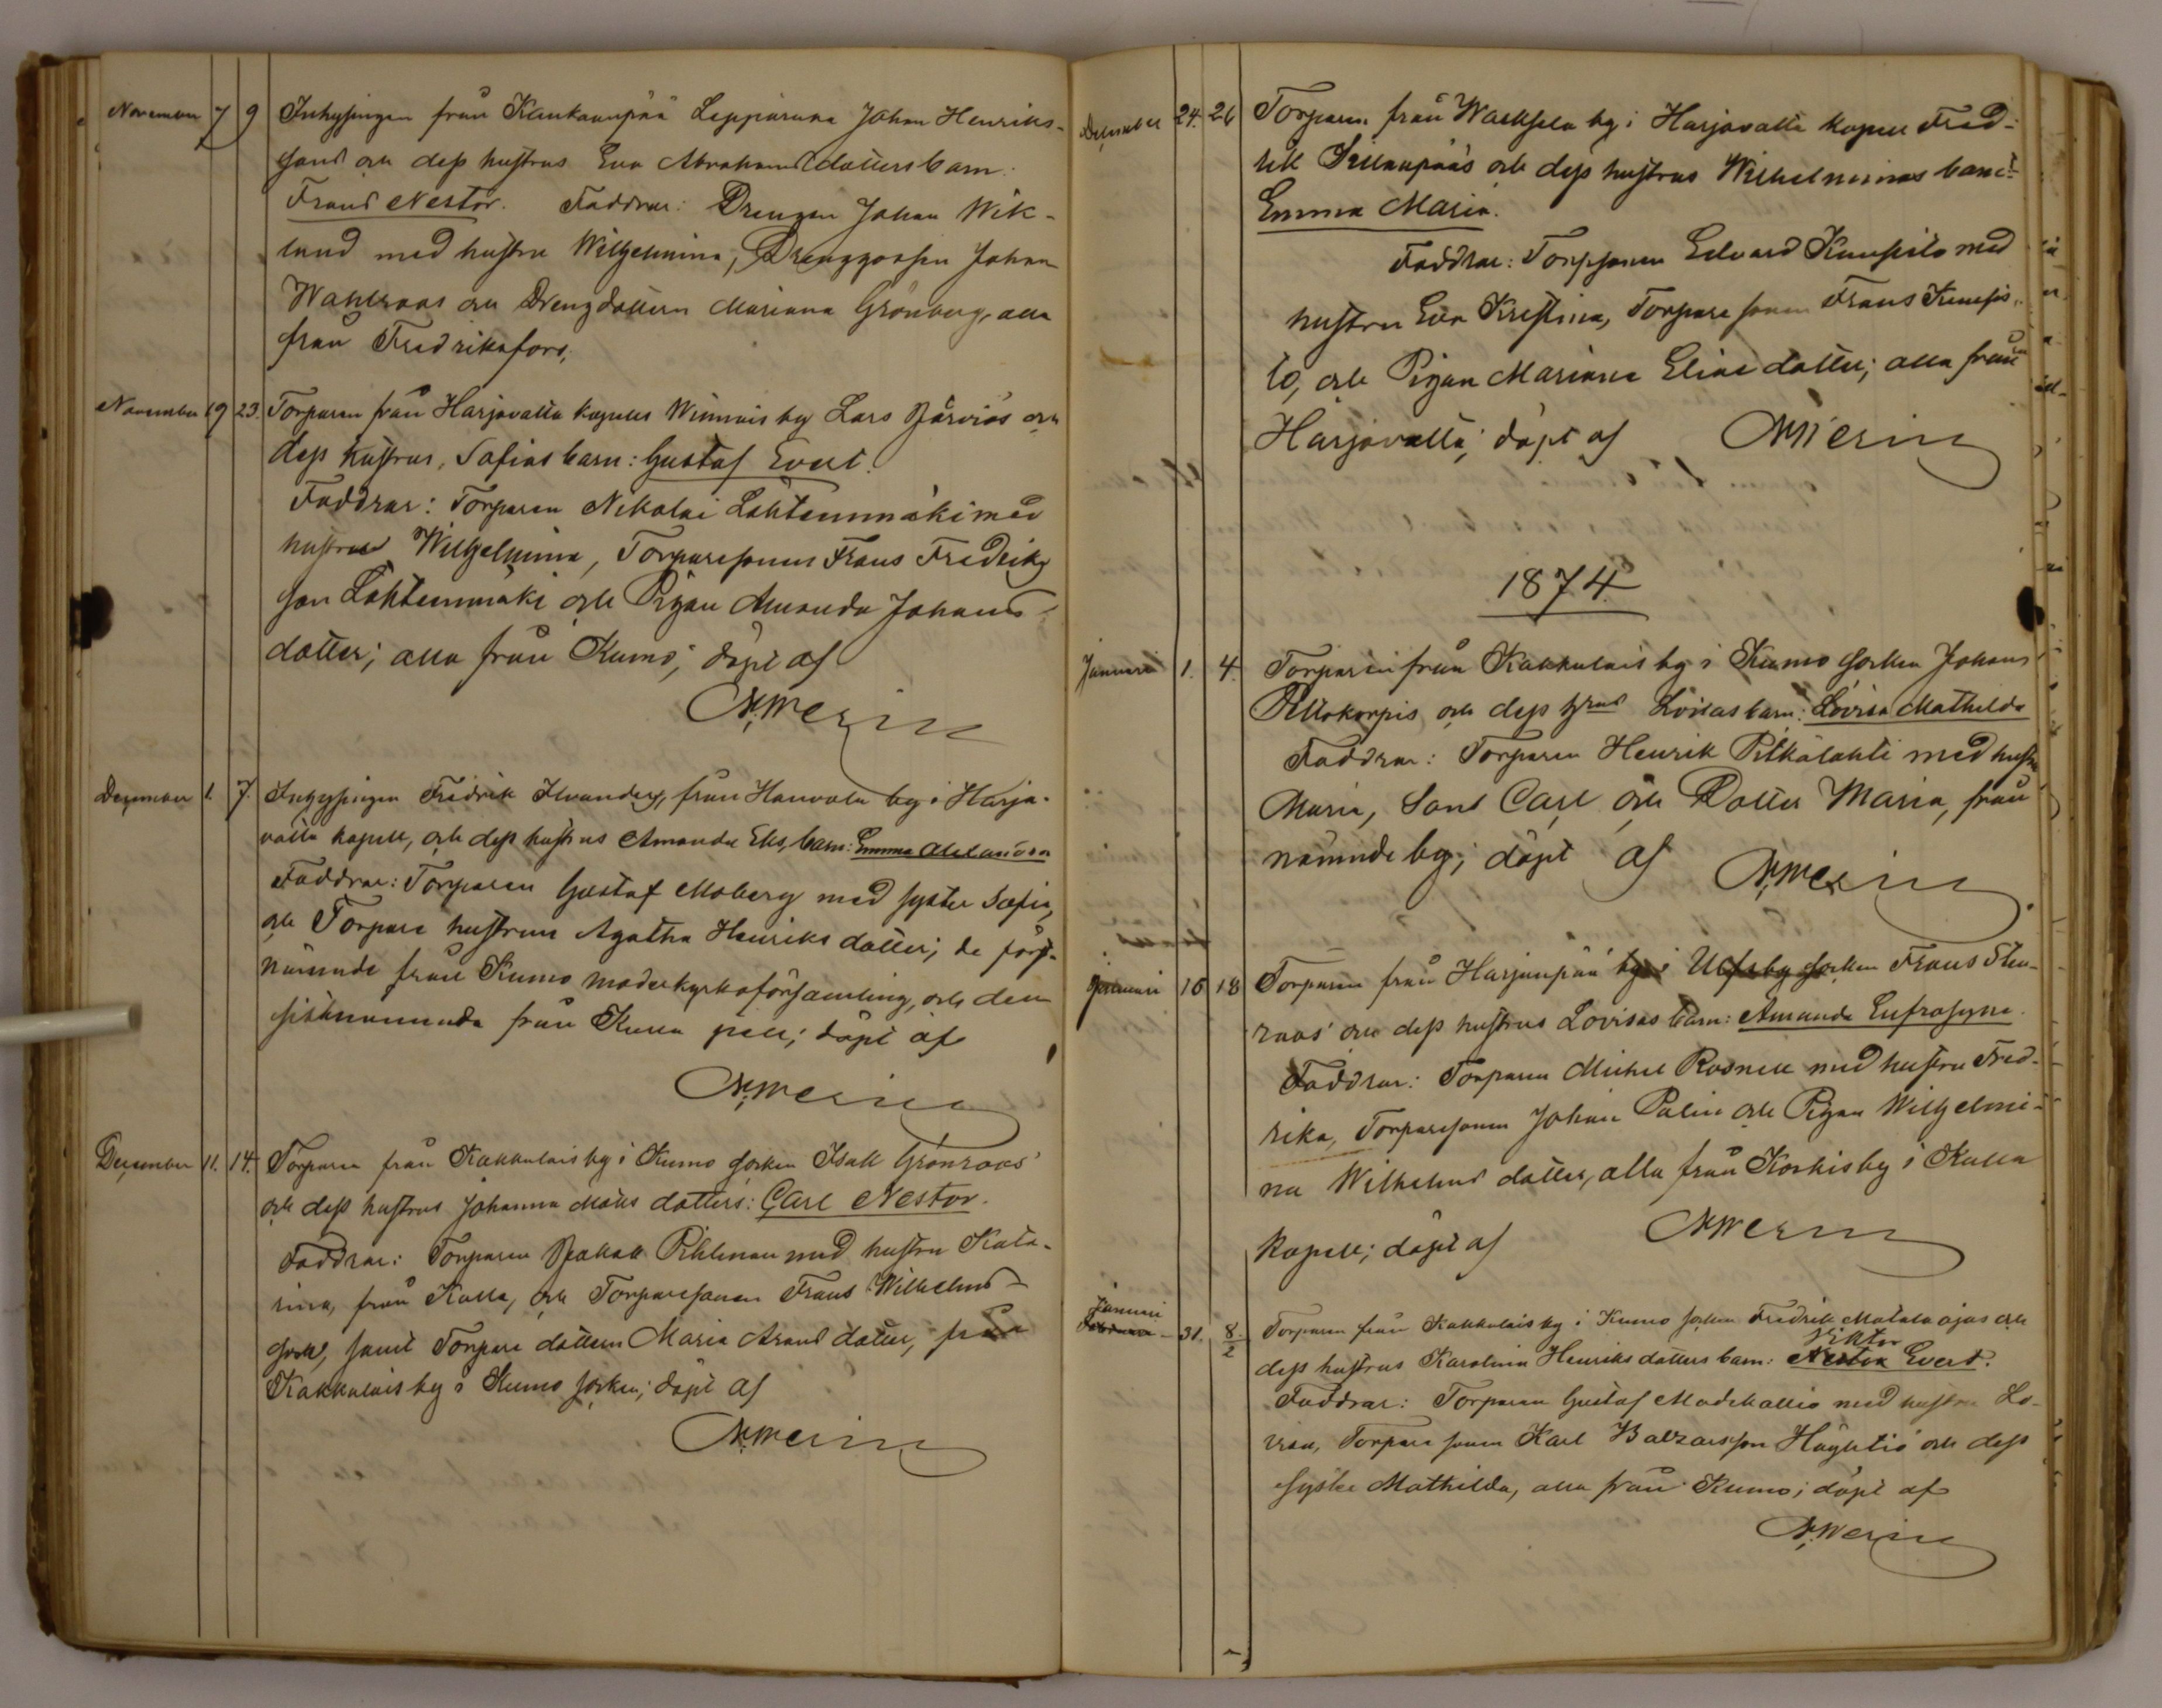 November 7 9 Inhysingen från Kankaanpää Leppäruna Johan Henriks-
sons och dess hustrus Eva Abrahamsdotters barn:
Frans Nestor. Faddrar: Drengen Johan Wik-
lund med hustru Wilhelmina, Drenggossen Johan
Wahlroos och Drengdottern Mariana Grönberg, alla
från Fredriksfors;
November 19 23. Torparen från Harjavalta kapells Winnais by Lars Järviös och
dess hustrus, Sofias barn: Gustaf Evert.
Faddrar: Torparen Nikolai Lähteenmäki med
hustru Wilhelmina, Torparesonen Frans Fredriks
son Lähteenmäki och Pigan Amanda Johans-
dotter; alla från Kumo; döpt af
December 1. 7. Inhysingen Fredrik Ilvanders, från Hanvola by i Harja-
valta kapell, och dess hustrus Amanda Eks, barn: Emma Alexandra
Faddrar: Torparen Gustaf Moberg med syster Sofia,
och Torpare hustrun Agatha Henriks dotter; de först-
nämnde från Kumo moderkyrkoförsamling, och den
sistnämnda från Kulla pell; döpt af
December 11. 14. Torparen från Kakkulais by i Kumo socken Isak Grönroos'
och dess hustrus Johanna Mats dotters: Carl Nestor.
Faddrar: Torparen Jakob Pihlman med hustru Kata-
rina, från Kulla, och Torparesonen Frans Wilhelms-
son, samt Torpare dottern Maria Arons dotter, från
Kakkulais by i Kumo socken; döpt af
December 24. 26 Torparen från by i Harjavalta kapell Fred-
rik och dess hustrus Wilhelminas barn:
Emma Maria.
Faddrar: Torparen Edvard Kuusisto med
hustru Eva Kristina, Torpare sonen Frans Kuusis-
to, och Pigan Mariana Elias dotter; alla från
Harjavalta; döpt af
1874
Januari 1. 4. Torparen från Kakkulais by i Kumo socken Johans
och dess hrus Lovisas barn: Lovisa Mathilda
Faddrar: Torparen Henrik Pitkälahti med hustru
Maria, Sons Carl och Dotter Maria, från
nämnde by; döpt af
Januari 16 18 Torparen från Harjunpää by i Ulfsby socken Frans Sten-
roos' och dess hustrus Lovisas barn: Amanda Eufrosyne.
Faddrar: Torparen Mickel Rosnell med hustru Fred-
rika, Torparesonen Johan Palin och Pigan Wilhelmi-
na Wilhelms dotter, alla från Koskis by i Kulla
kapell; döpt af
Januari
31. 8/2 Torparen från Kakkulais by i Kumo socken Fredrik Matala ojas och
Viktor
dess hustrus Karolina Henriks dotters barn: Nestor Evert.
Faddrar: Torparen Gustaf med hustru Lo-
visa, Torpare sonen Karl Balzarsson och dess
syster Mathilda, alla från Kumo; döpt af